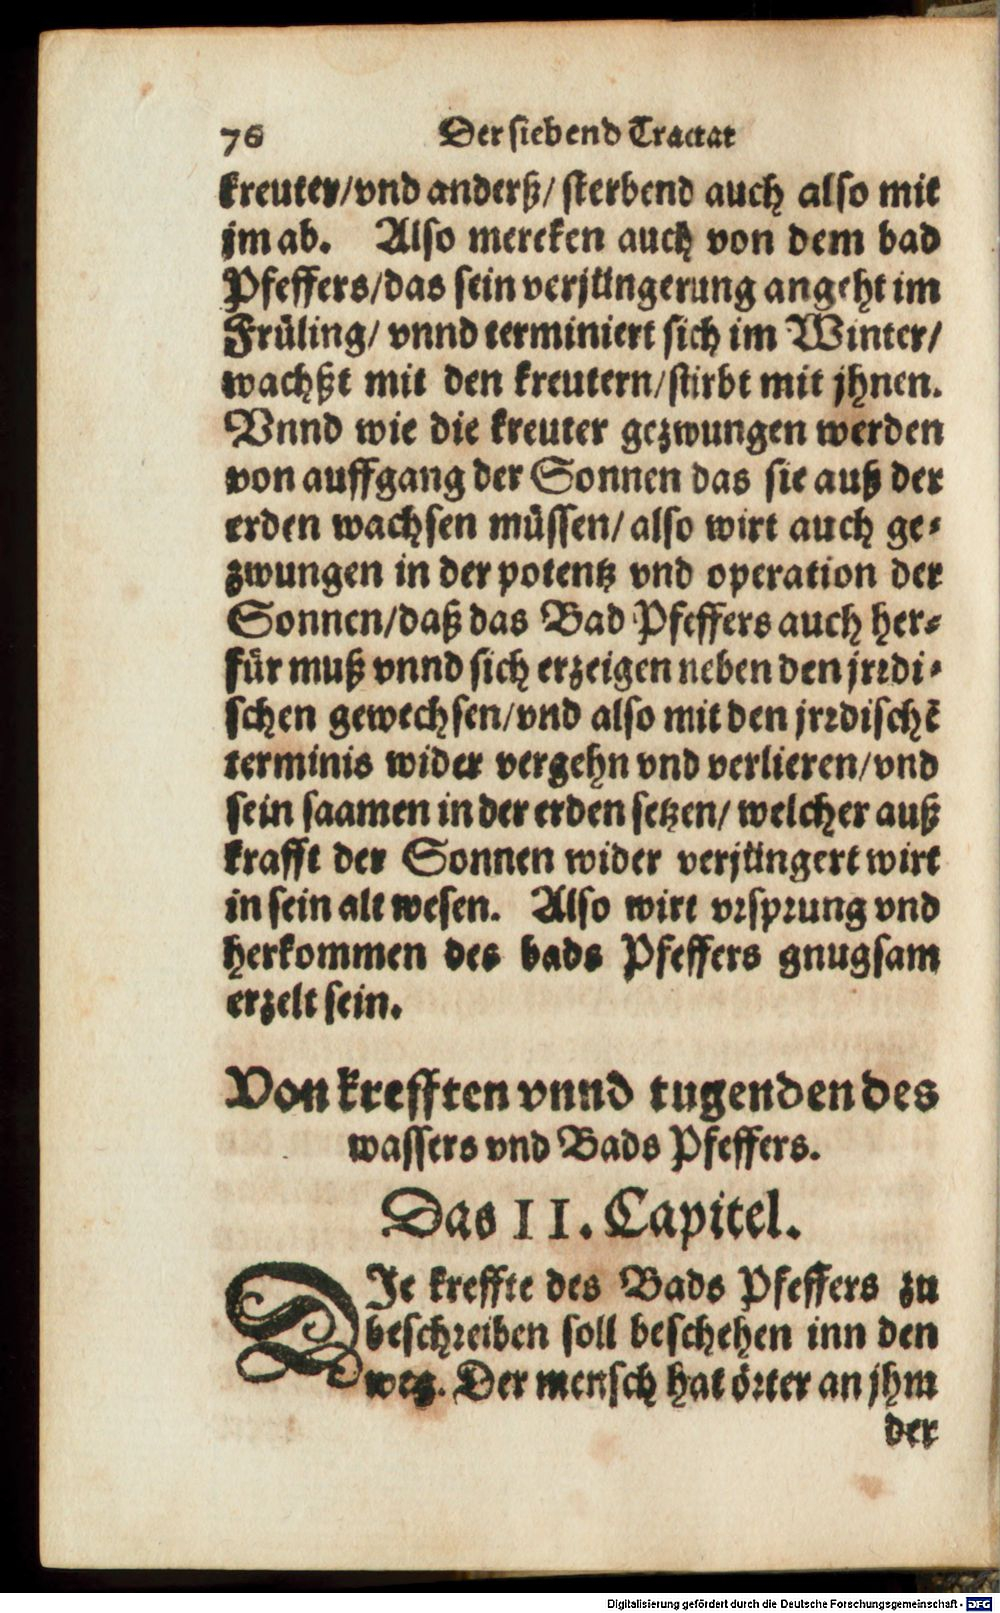 76 Der siebend Tractat
kreuter/vnd anderß/ sterbend auch also mit
jm ab. Also mercken auch von dem bad
Pfeffers/das sein verjüngerung angeht im
Früling/ vnnd terminiert sich im Winter/
wachßt mit den kreutern/stirbt mit jhnen.
Vnnd wie die kreuter gezwungen werden
von auffgang der Sonnen das sie auß der
erden wachsen müssen/ also wirt auch ge-
zwungen in der potentz vnd operation der
Sonnen/daß das Bad Pfeffers auch her-
für muß vnnd sich erzeigen neben den jrrdi-
schen gewechsen/vnd also mit den jrrdischē
terminis wider vergehn vnd verlieren/vnd
sein saamen in der erden setzen/ welcher auß
krafft der Sonnen wider verjüngert wirt
in sein alt wesen. Also wirt vrsprung vnd
herkommen des bads Pfeffers gnugsam
erzelt sein.
Von krefften vnnd tugenden des
wassers vnd Bads Pfeffers.
Das II. Capitel.
DIe kreffte des Bads Pfeffers zu
beschreiben soll beschehen inn den
weg. Der mensch hat örter an jhm
der
Digitalisierung gefördert durch die Deutsche Forschungsgemeinschaft - DFG